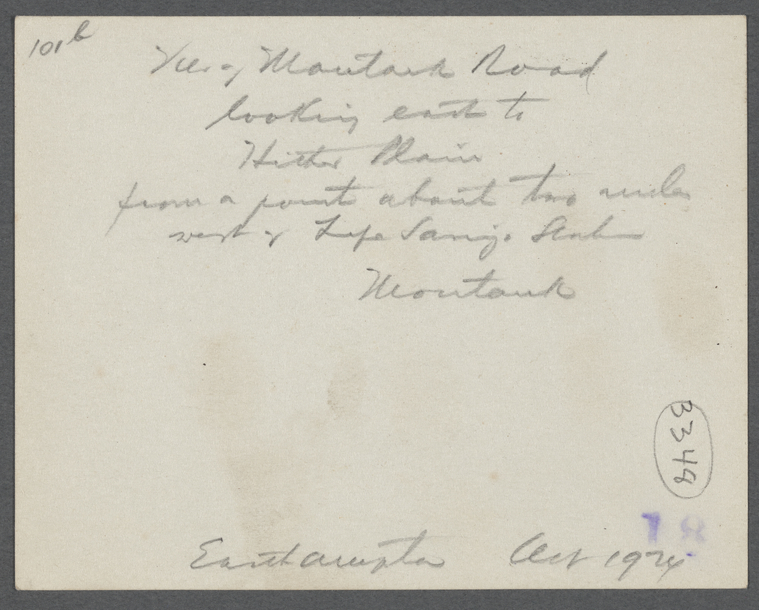 101b
View of Montauk Road
looking east to
Hither Plain
from a point about two miles
west of Life Saving Station
Montauk
B348
78
Easthampton Oct 1924